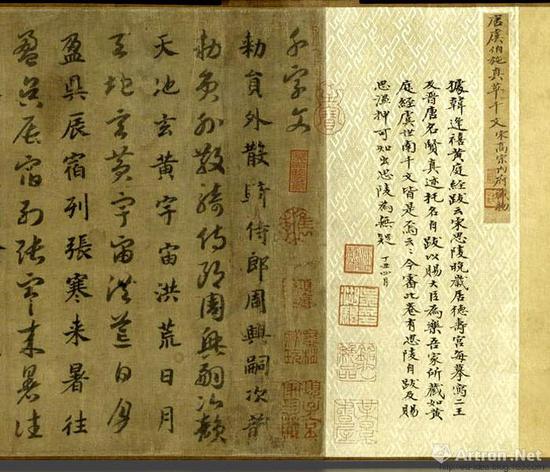 唐虞伯施真草千文 宋高宗内府
據韓逢禧黃庭經跋云宋思陵晚歲居德壽宮每摹寫二王
及晉唐名賢真迹托名自跋以賜大臣為樂吾家所藏如黃
庭經虞世南千文皆是焉云云今審此卷有思陵自跋及賜
思溫押可知出思陵為無疑 丁丑四月
千字文
勅員外散騎侍郎周興嗣次韻
勅員外散騎侍郎周興嗣次韻
天地玄黃宇宙洪荒日月
天地玄黃宇宙洪荒日月
盈昃辰宿列張寒来暑往
盈昃辰宿列張寒来暑往
Artron.Net